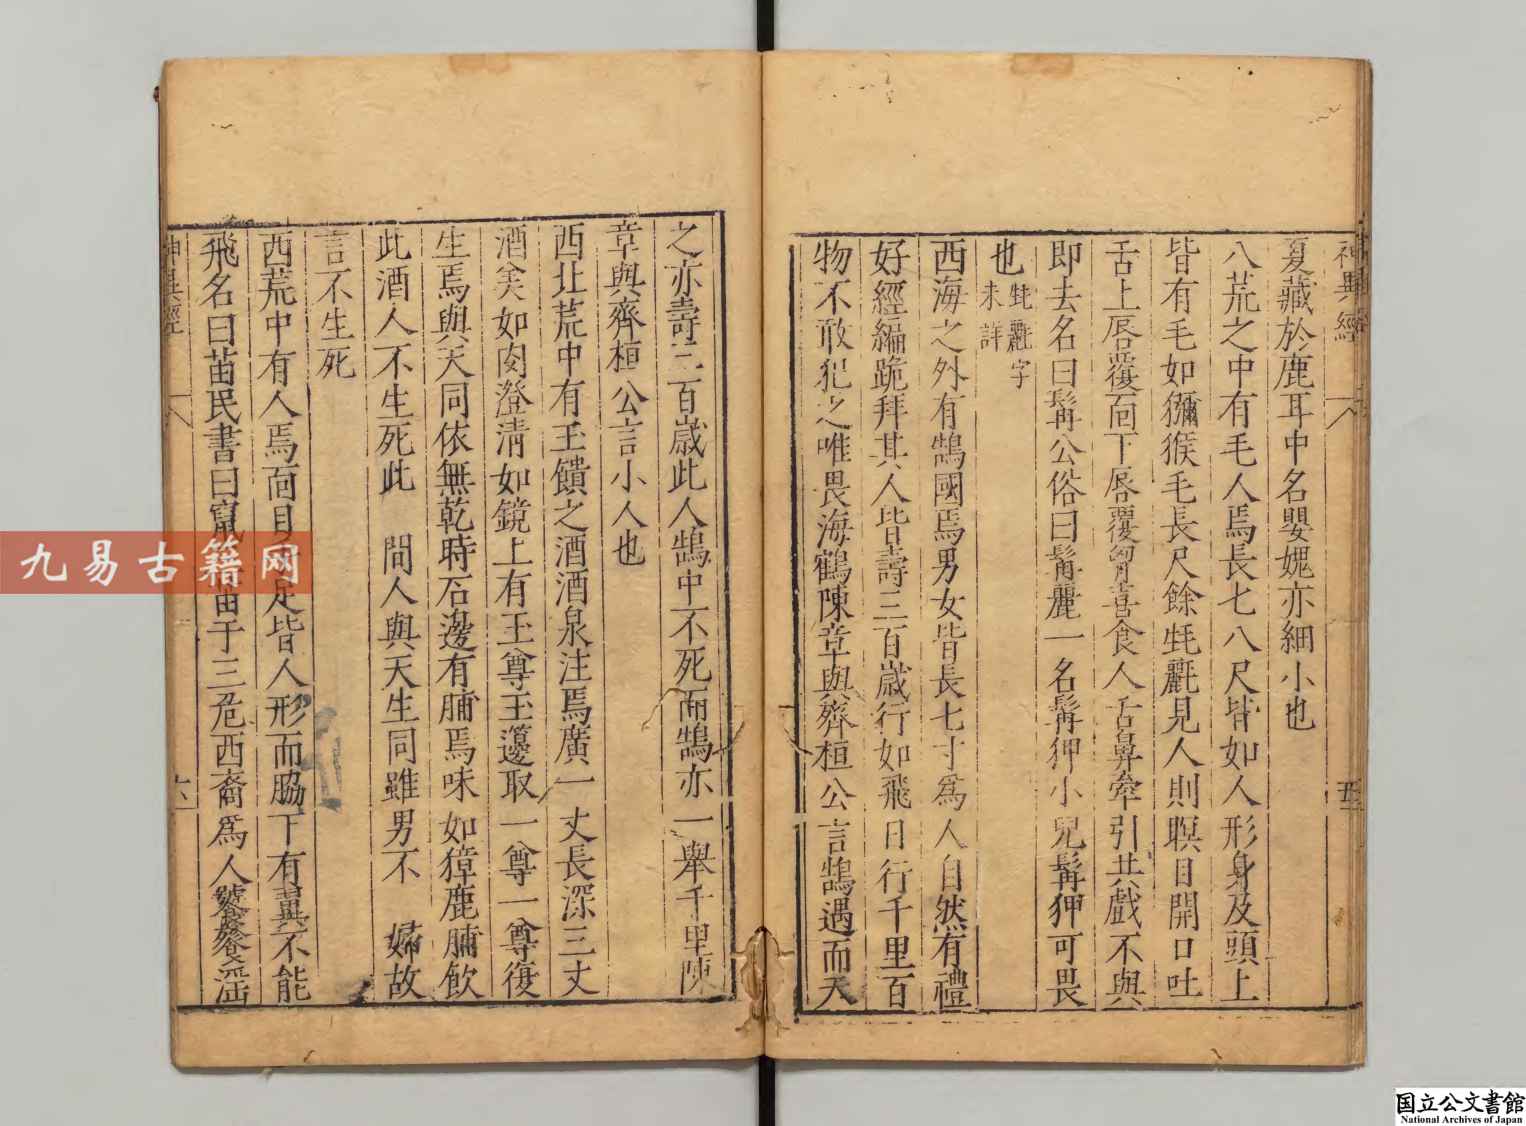 神異經 八 五
夏藏於鹿耳中名嬰媿亦細小也
八荒之中有毛人焉長七八尺皆如人形身及頭上
皆有毛如獼猴毛長尺餘毨𣯶見人則瞑目開口吐
舌上唇覆面下唇覆胷喜食人舌鼻牽引共戲不與
即去名曰髯公俗曰髯麗一名髯狎小兒髯狎可畏
也
未詳
西海之外有鵠國焉男女皆長七寸為人自然有禮
好經編跪拜其人皆壽三百歲行如飛日行千里百
物不敢犯之唯畏海鶴陳章與齊桓公言鵠遇而天
之亦壽三百歲此人鵠中不死而鵠亦一舉千里陳
章與齊桓公言小人也
西北荒中有玉饋之酒酒泉注焉廣一丈長深三丈
酒美如肉澄清如鏡上有玉尊玉籩取一尊一尊復
生焉與天同依無乾時石邊有脯焉味如獐鹿脯飲
此酒人不生死此 間人與天生同雖男不 婦故
言不生死
西荒中有人焉面目足皆人形而脇下有翼不能
飛名曰苗民書曰竄苗于三危西裔為人饕餮淫
神異經 八 六
九易古籍网
国立公文書館
National Archives of Japan